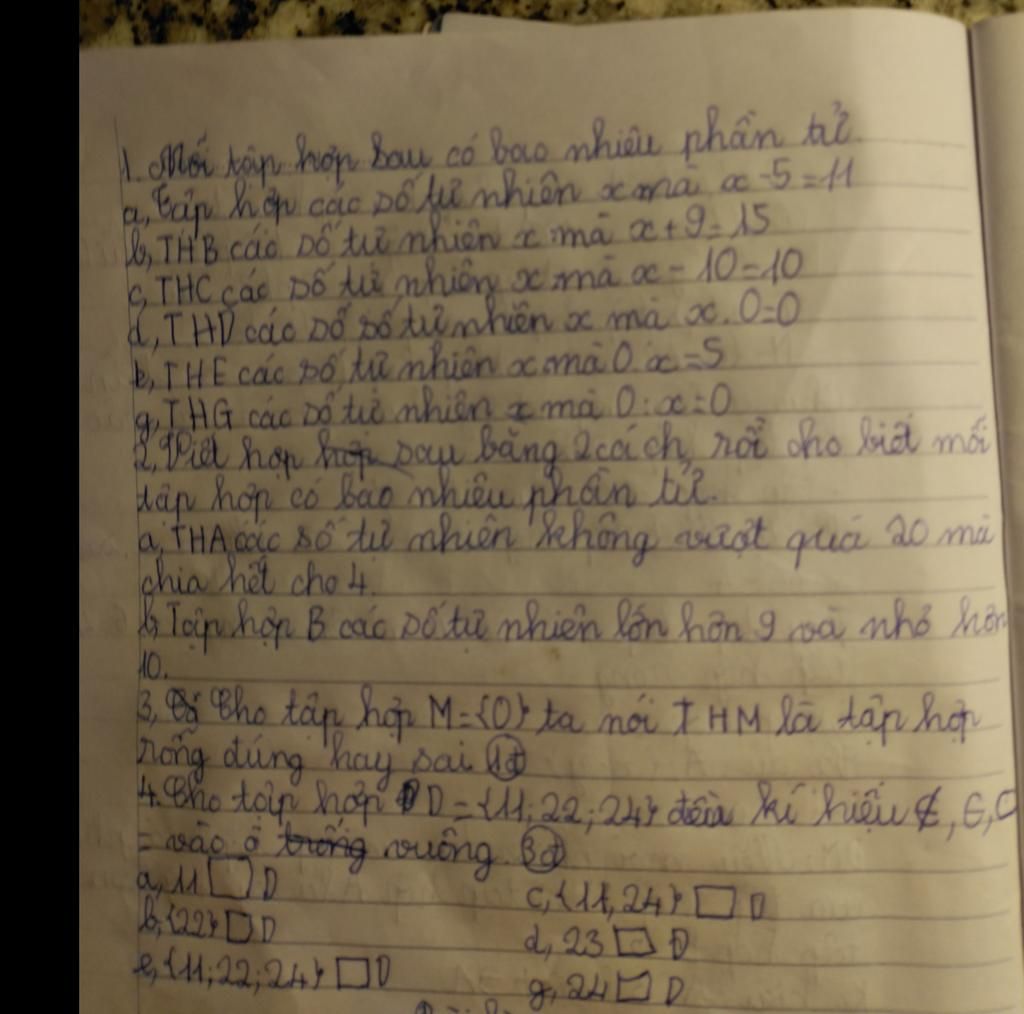 1. Mỗi tập hợp sau có bao nhiêu phần tử.
a, Tập hợp các số tự nhiên x mà x - 5 = 11
b, THB các số tự nhiên x mà x + 9 = 15
c, THC các số tự nhiên x mà x - 10 = 10
d, THD các số số tự nhiên x mà x . 0 = 0
e, THE các số tự nhiên x mà 0 . x = 5
g, THG các số tự nhiên x mà 0 : x = 0
2, Viết hợp hợp sau bằng 2 cách, rồi cho biết mỗi
tập hợp có bao nhiêu phần tử.
a, THA các số tự nhiên không vượt quá 20 mà
chia hết cho 4.
b, Tập hợp B các số tự nhiên lớn hơn 9 và nhỏ hơn
10.
3, Cho tập hợp M = {0} ta nói THM là tập hợp
rỗng đúng hay sai 1đ
4. Cho tập hợp D = {11; 22; 24} điền kí hiệu ∉, ∈, ⊂
= vào ô trống vuông. 3đ
a, 11 □ D
c, {11, 24} □ D
b, {22} □ D
d, 23 □ D
e, {11; 22; 24} □ D
g, 24 □ D